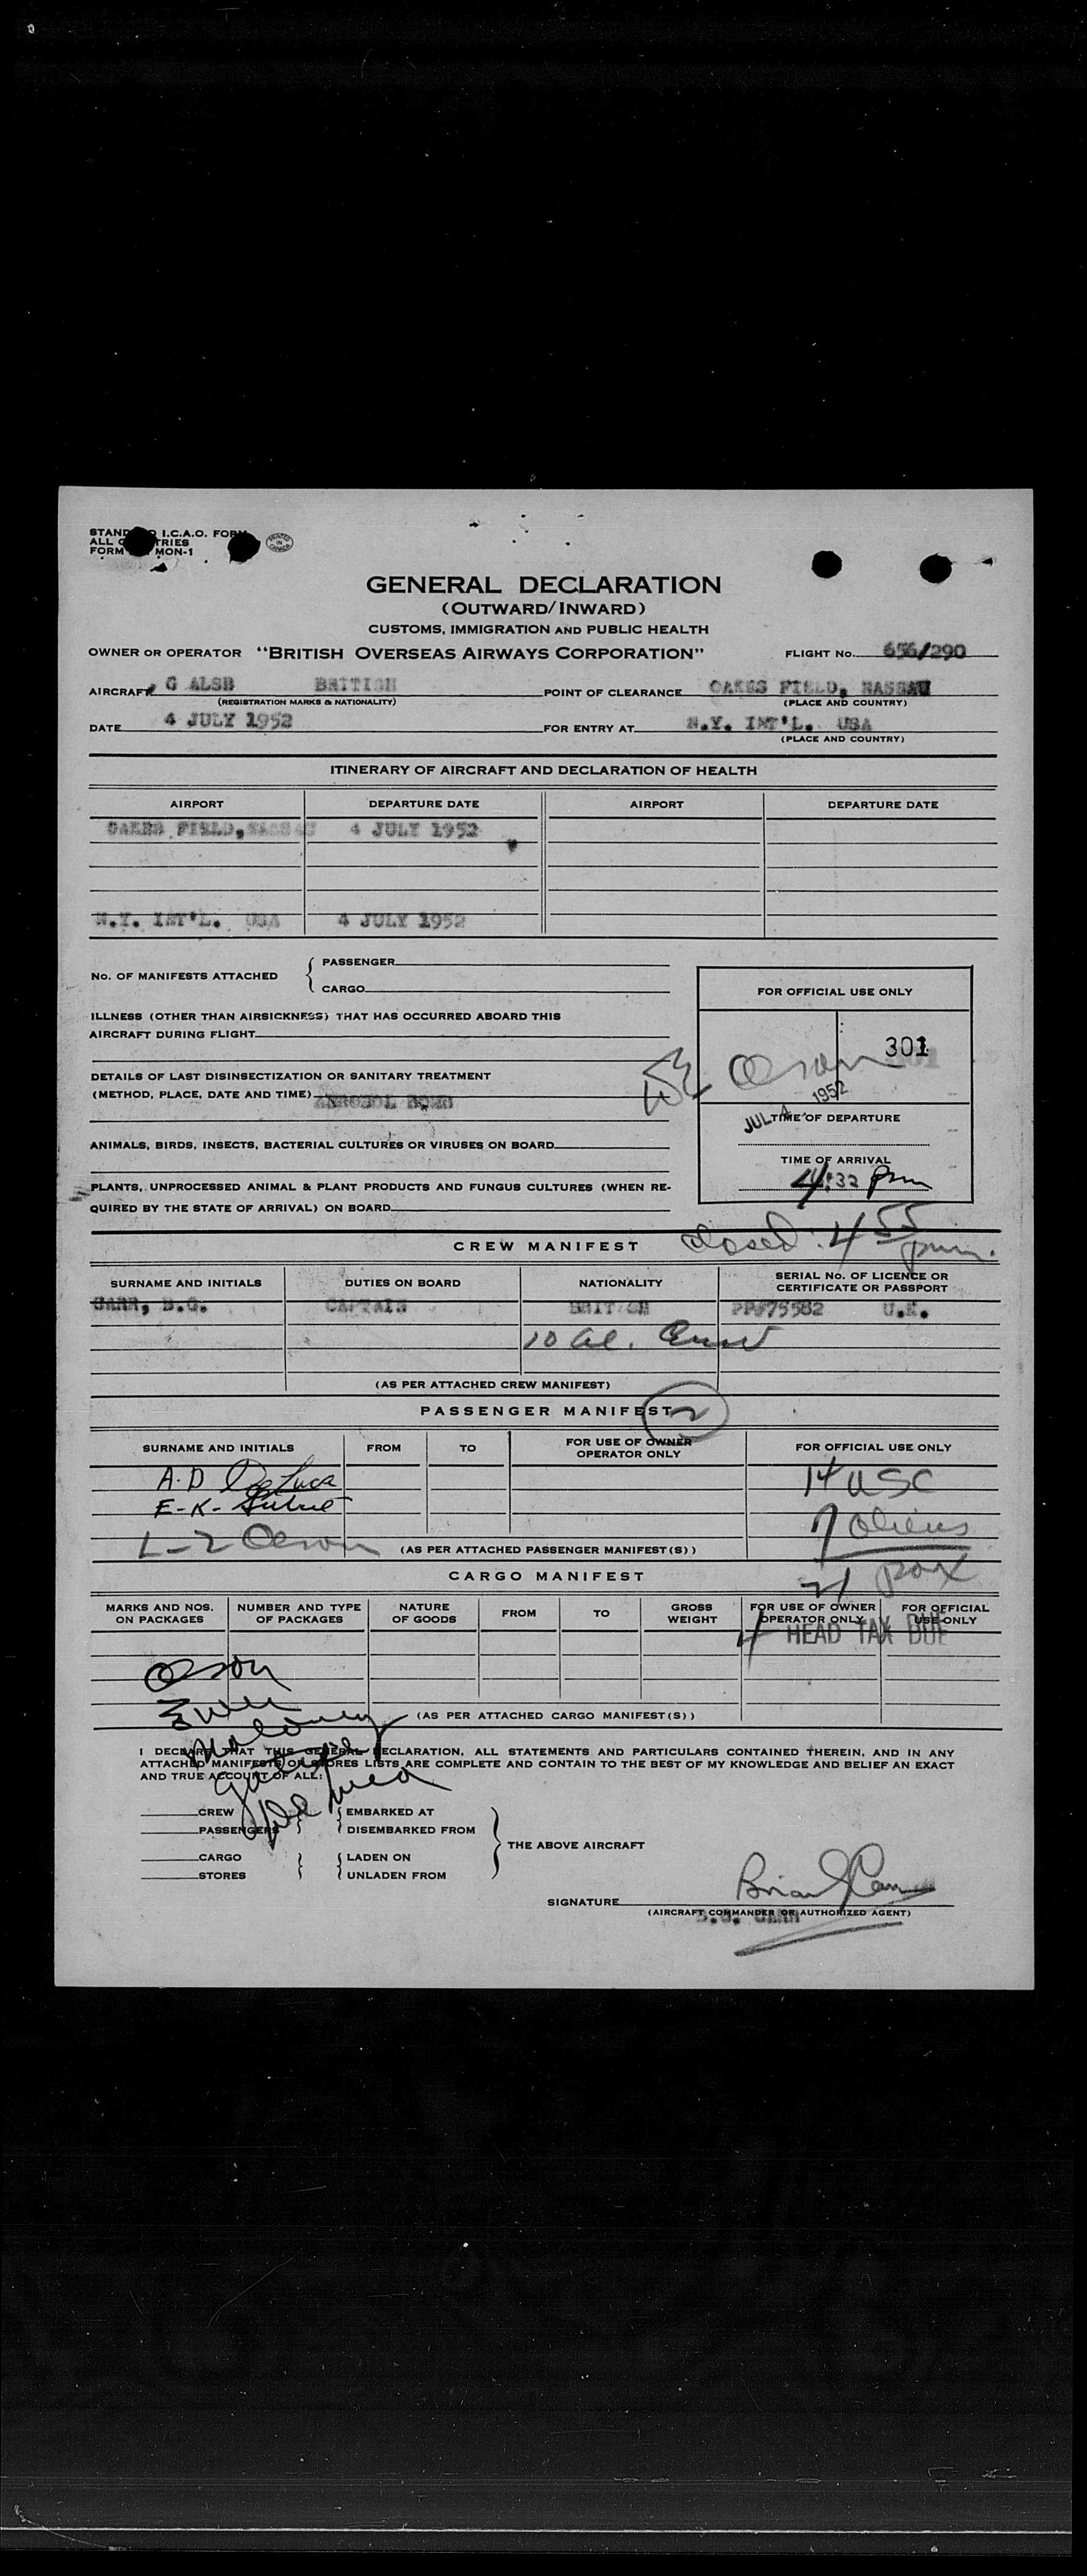 STAND I.C.A.O. FORM
ALL TRIES
FORM MON-1
PRINTED IN CANADA
GENERAL DECLARATION
(OUTWARD/INWARD)
CUSTOMS, IMMIGRATION AND PUBLIC HEALTH
OWNER OR OPERATOR "BRITISH OVERSEAS AIRWAYS CORPORATION" FLIGHT No. 656/290
AIRCRAFT G ALSB BRITISH POINT OF CLEARANCE OAKES FIELD, NASSAU
(REGISTRATION MARKS & NATIONALITY) (PLACE AND COUNTRY)
DATE 4 JULY 1952 FOR ENTRY AT N.Y. INT'L. USA
(PLACE AND COUNTRY)
ITINERARY OF AIRCRAFT AND DECLARATION OF HEALTH
AIRPORT DEPARTURE DATE AIRPORT DEPARTURE DATE
OAKES FIELD, NASSAU 4 JULY 1952
N.Y. INT'L. USA 4 JULY 1952
No. OF MANIFESTS ATTACHED { PASSENGER
CARGO
FOR OFFICIAL USE ONLY
ILLNESS (OTHER THAN AIRSICKNESS) THAT HAS OCCURRED ABOARD THIS
AIRCRAFT DURING FLIGHT
301
Olson
DETAILS OF LAST DISINSECTIZATION OR SANITARY TREATMENT
(METHOD, PLACE, DATE AND TIME) AEROSOL BOMB
JUL 4 1952
TIME OF DEPARTURE
ANIMALS, BIRDS, INSECTS, BACTERIAL CULTURES OR VIRUSES ON BOARD
TIME OF ARRIVAL
4:32 pm
PLANTS, UNPROCESSED ANIMAL & PLANT PRODUCTS AND FUNGUS CULTURES (WHEN RE-
QUIRED BY THE STATE OF ARRIVAL) ON BOARD
closed: 4 55 pm.
CREW MANIFEST
SURNAME AND INITIALS DUTIES ON BOARD NATIONALITY SERIAL No. OF LICENCE OR CERTIFICATE OR PASSPORT
CARR, B.G. CAPTAIN BRITISH PP#75582 U.K.
10 al. Crew
(AS PER ATTACHED CREW MANIFEST)
PASSENGER MANIFEST 2
SURNAME AND INITIALS FROM TO FOR USE OF OWNER OPERATOR ONLY FOR OFFICIAL USE ONLY
A-D DeLuca 14 USC
E-K- 7 aliens
L-Z Olson
(AS PER ATTACHED PASSENGER MANIFEST(S))
21 pax
CARGO MANIFEST
MARKS AND NOS. ON PACKAGES NUMBER AND TYPE OF PACKAGES NATURE OF GOODS FROM TO GROSS WEIGHT FOR USE OF OWNER OPERATOR ONLY FOR OFFICIAL USE ONLY
4 HEAD TAX DUE
Olson
Maloney
(AS PER ATTACHED CARGO MANIFEST(S))
I DECLARE THAT THIS GENERAL DECLARATION, ALL STATEMENTS AND PARTICULARS CONTAINED THEREIN, AND IN ANY
ATTACHED MANIFESTS OR STORES LISTS ARE COMPLETE AND CONTAIN TO THE BEST OF MY KNOWLEDGE AND BELIEF AN EXACT
AND TRUE ACCOUNT OF ALL:
CREW EMBARKED AT
PASSENGERS DISEMBARKED FROM
THE ABOVE AIRCRAFT
CARGO LADEN ON
STORES UNLADEN FROM
SIGNATURE Brian G Carr
(AIRCRAFT COMMANDER OR AUTHORIZED AGENT)
B.G. CARR